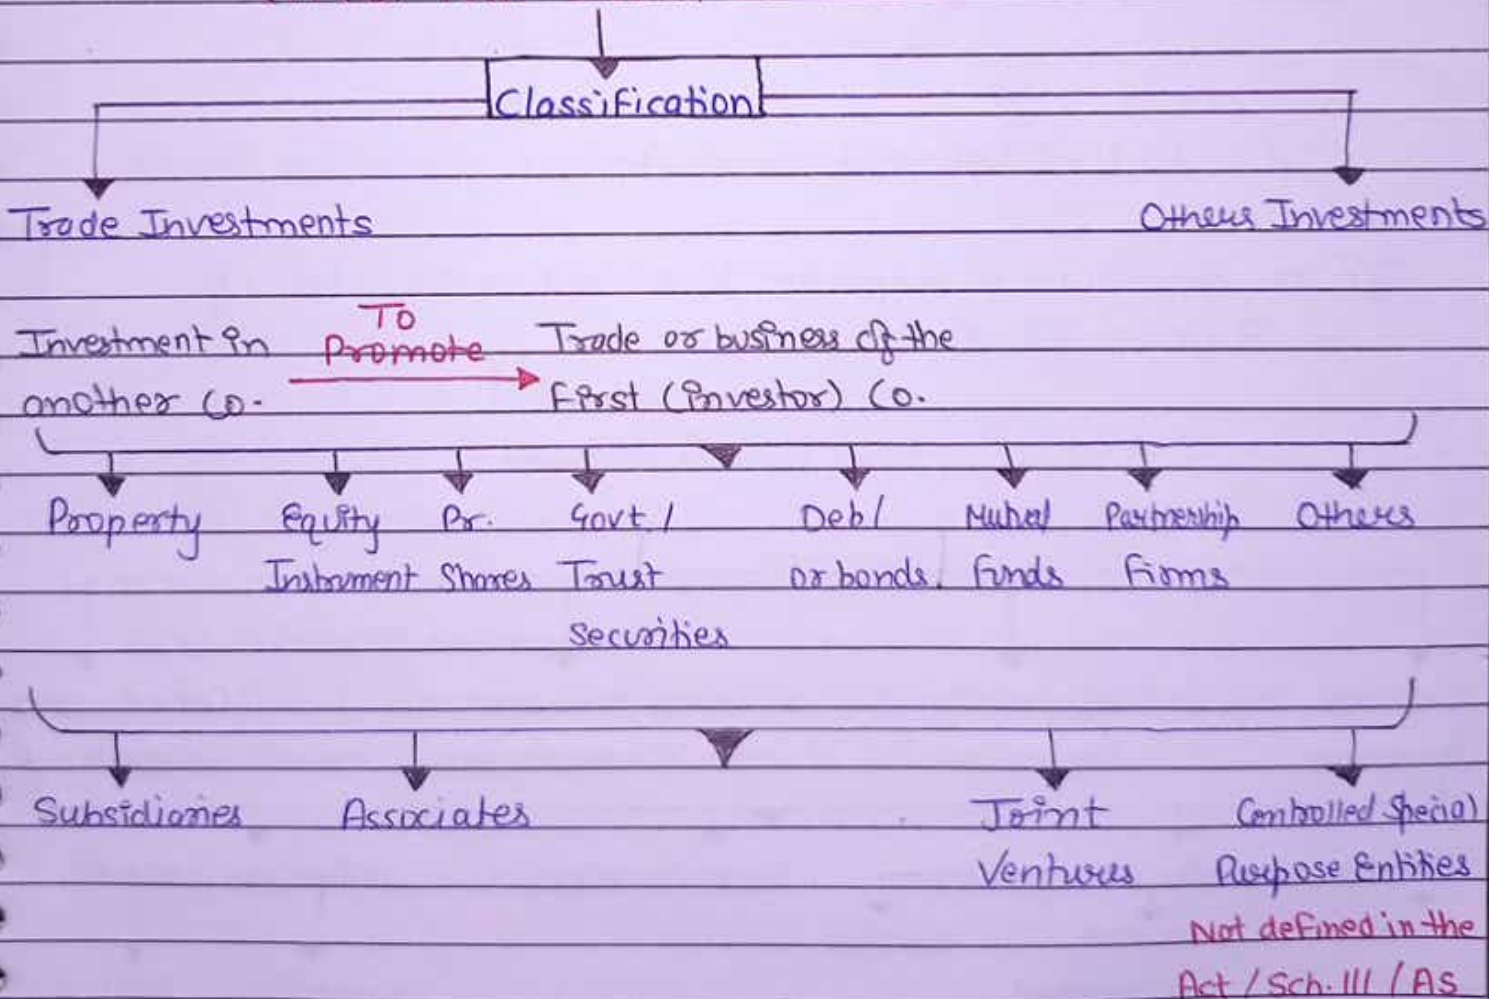 Classification
Trade Investments
Others Investments
Investment in
another Co.
To
Promote
Trade or business of the
First (investor) Co.
Property
Equity
Instrument
Pr.
Shares
Govt. /
Trust
Securities
Deb/
or bonds.
Mutual
Funds
Partnership
Firms
Others
Subsidiaries
Associates
Joint
Ventures
Controlled Special
Purpose Entities
Not defined in the
Act / Sch. III / AS